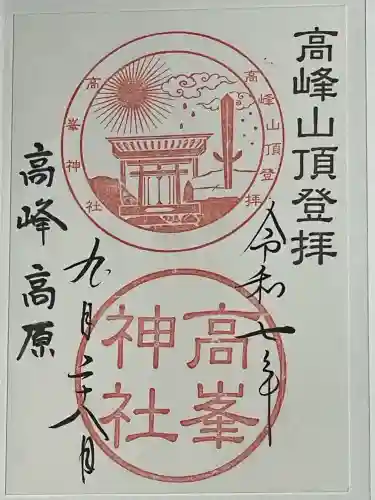 高峰山頂登拝
令和七年
九月二十八月
高峰高原
高峯神社
高峰山頂登拝
高峯
神社